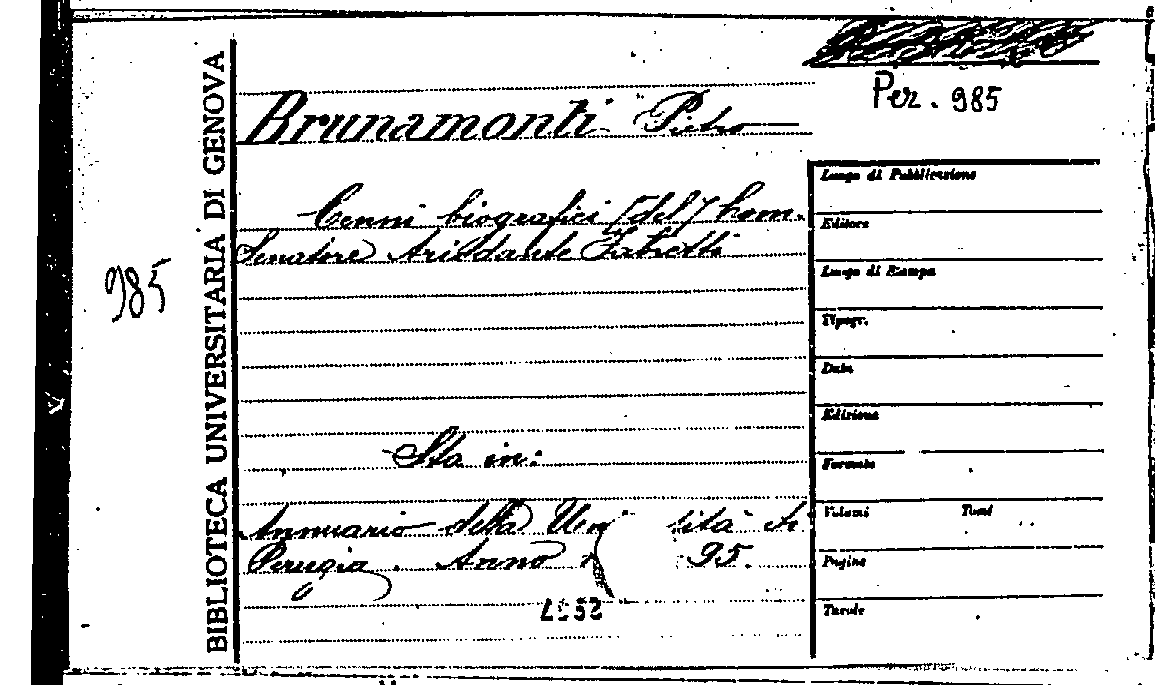 Per. 985
Brunamonti Pietro
Cenni biografici [del] Com.
Senatore Ariodante Fabretti
985
BIBLIOTECA UNIVERSITARIA DI GENOVA
Sta in:
Annuario della Uni sità di
Perugia. Anno 95.
Luogo di Pubblicazione
Editore
Luogo di Stampa
Tipogr.
Data
Edizione
Formato
Volumi Tomi
Pagine
Tavole